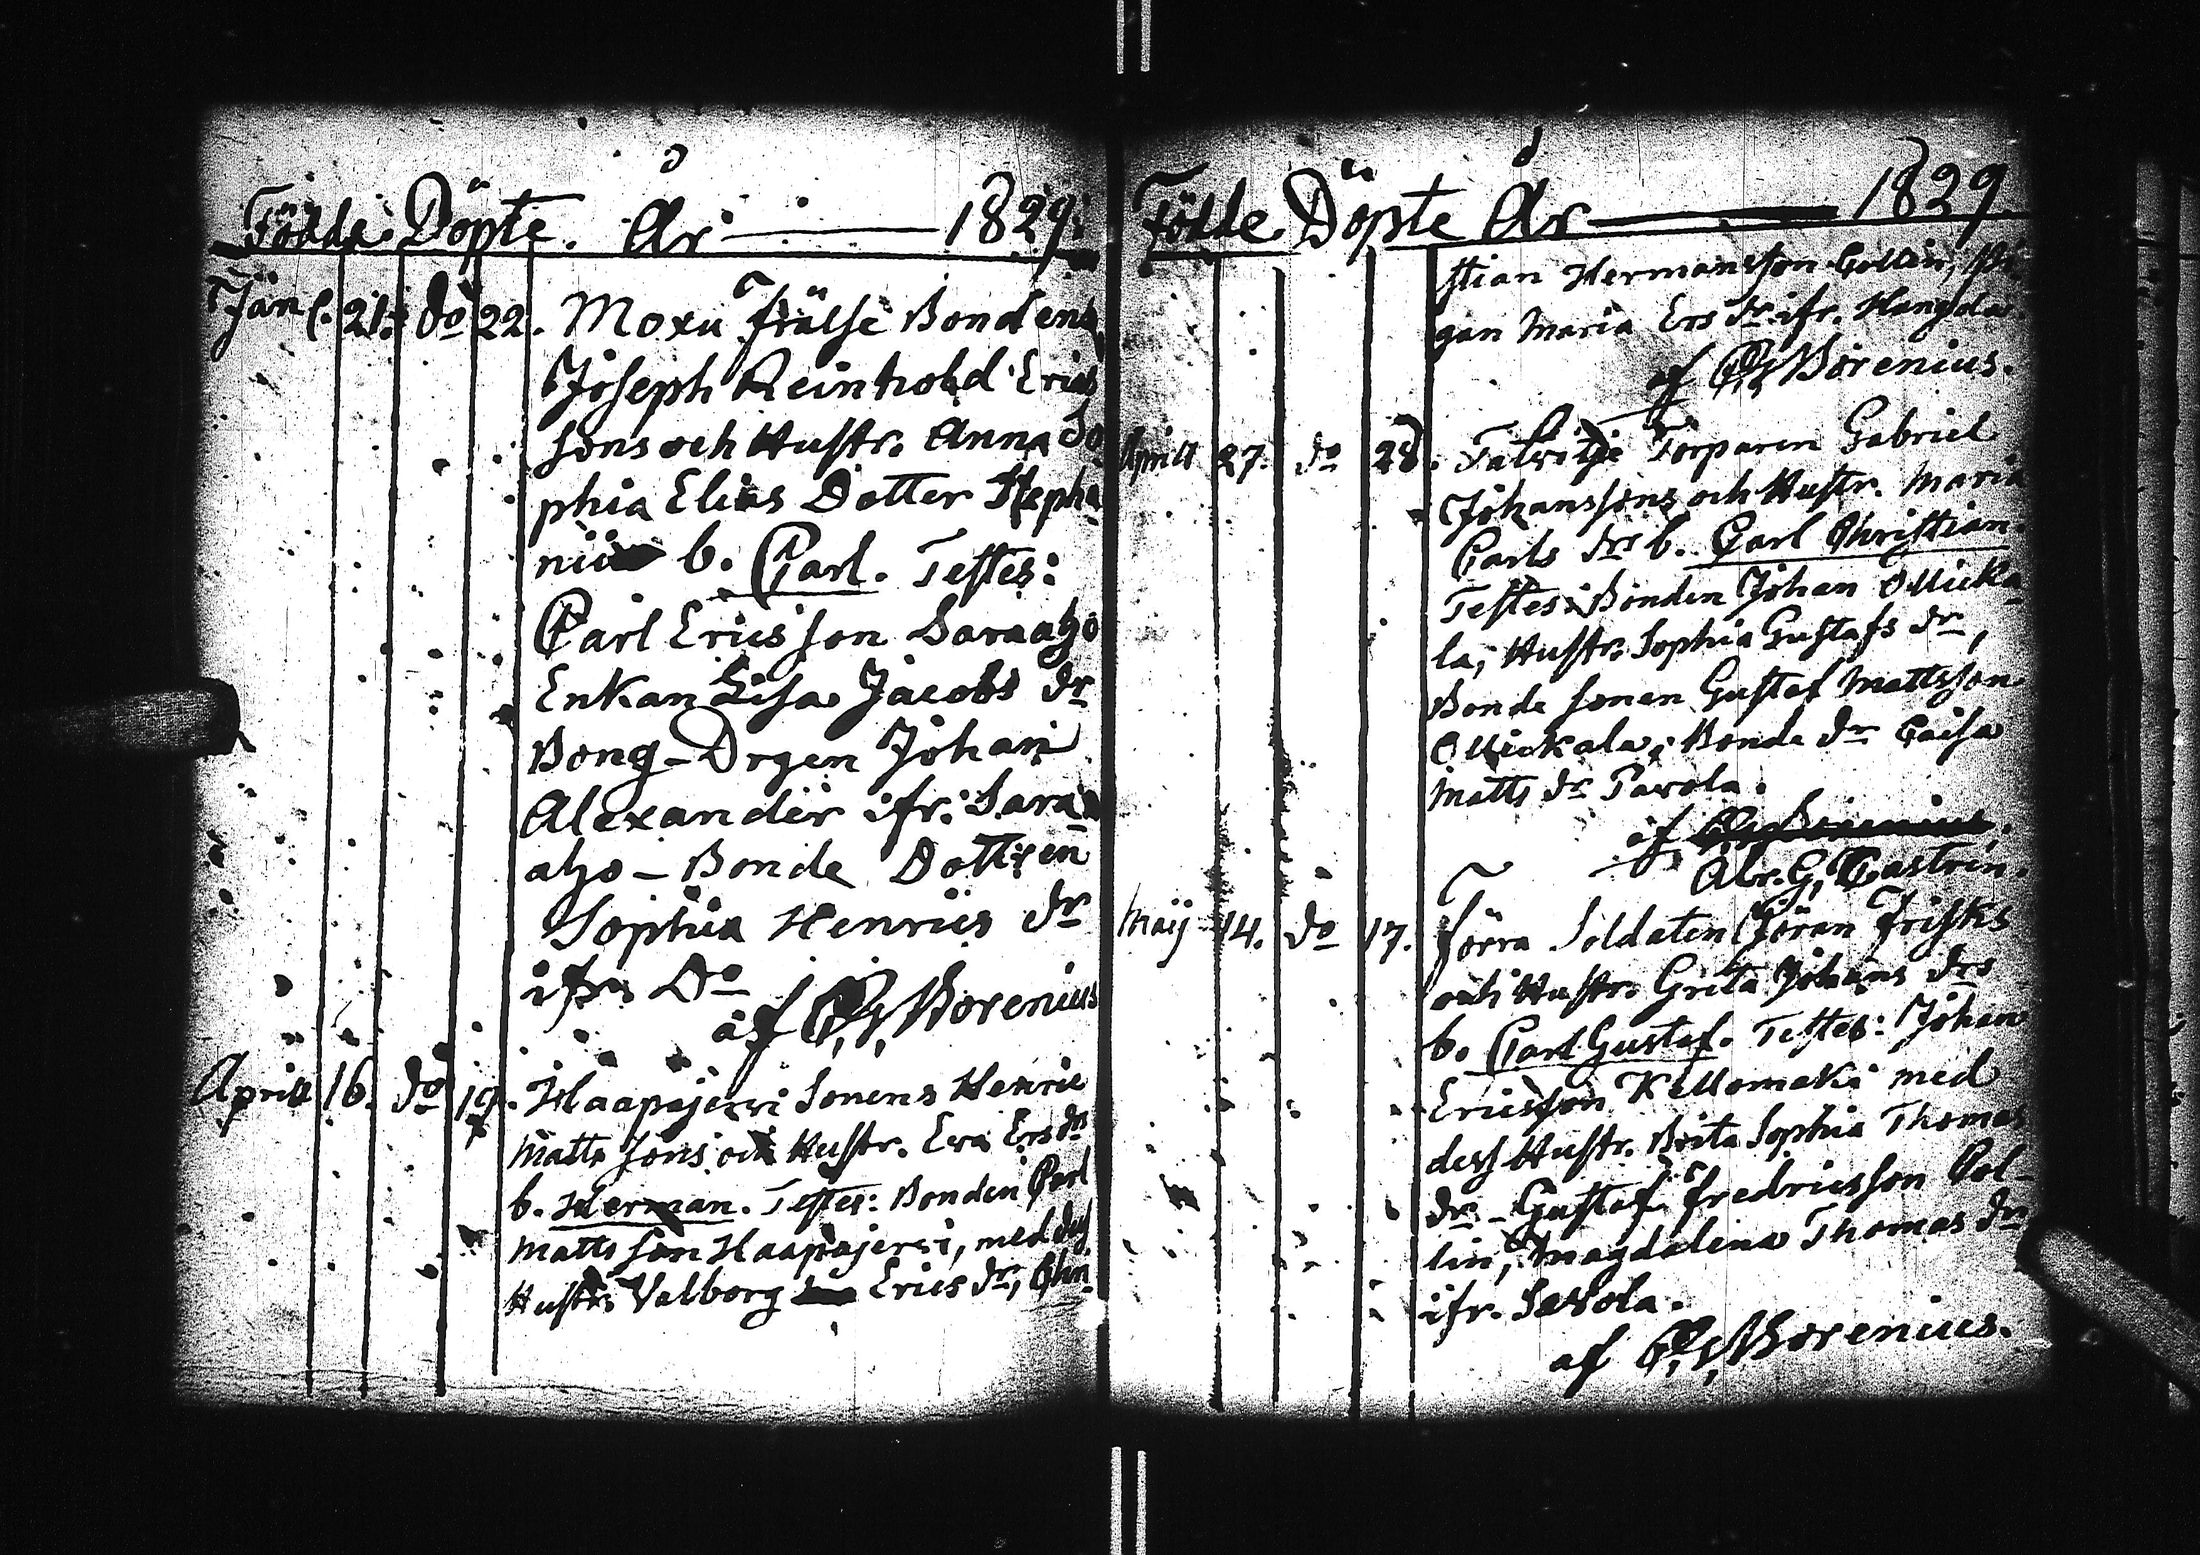 Födde Döpte År 1829.
Jan. 21. do 22. Moxu frälse Bondens
Joseph Reinhold Erics
sons och Hustr. Anna So
phia Elias Dotter Stepha
nii b. Carl. Testes:
Carl Ericsson Saraaho
Enkan Lisa Jacobs dr
Bong-Drgen Johan
Alexander ifr. Sara-
aho - Bonde Dottren
Sophia Henrics dr
ifr. Do
af C. G. Borenius
Aprill 16. do 19. Haapajerwi Sonens Henric
Matts sons och Hustr. Eva Ers drs
b. Herman. Testes: Bonden Carl
Matts son Haapajerwi, med dess
Hustr. Valborg Erics dr, Chri
Födde Döpte År 1829
stian Hermansson Collin, Pi
gan Maria Ers dr ifr.
af C. G. Borenius.
Aprill 27. do 28. Talwitje Torparen Gabriel
Johanssons och Hustr. Maria
Carls drs b. Carl Christian.
Testes: Bonden Johan Ollicka
la, Hustr. Sophia Gustafs dr,
Bonde sonen Gustaf Mattsson
Ollickala, Bonde dr Caisa
Matts dr Pavola.
af C. G. Borenius.
Abr. G. Castrin.
Maij 14. do 17. förra Soldaten Göran Frisks
och Hustr. Grita Johans drs
b. Carl Gustaf. Testes: Johan
Ericsson Kellomaki med
dess Hustr. Brita Sophia Thomas
dr - Gustaf Fredricsson Col-
lin, Magdalena Thomas dr
ifr. Savola.
af C. G. Borenius.